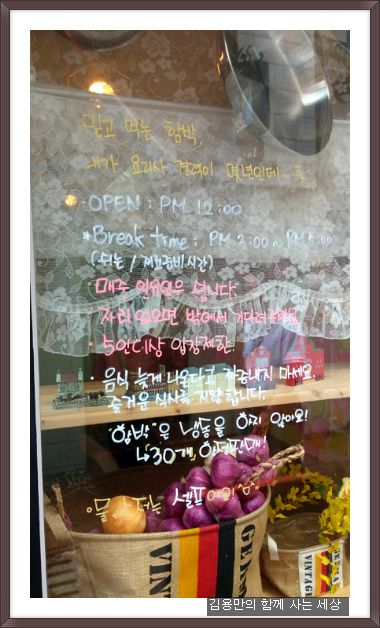 믿고 먹는 함박,
내가 요리사 경력이 몇년인데... 훗
· OPEN : PM 12:00
* Break time : PM 3:00 ~ PM 5:00
(쉬는 / 재료준비시간)
· 매주 일요일은 쉽니다.
· 자리 없으면 밖에서 기다려주세요
· 5인이상 입장제한.
· 음식 늦게 나온다고 짜증내지 마세요.
즐거운 식사를 지향합니다.
· "함박"은 냉동을 하지 않아요!
30개
물 셀프
GER
VINTAGE
VINTAGE
김용만의 함께 사는 세상